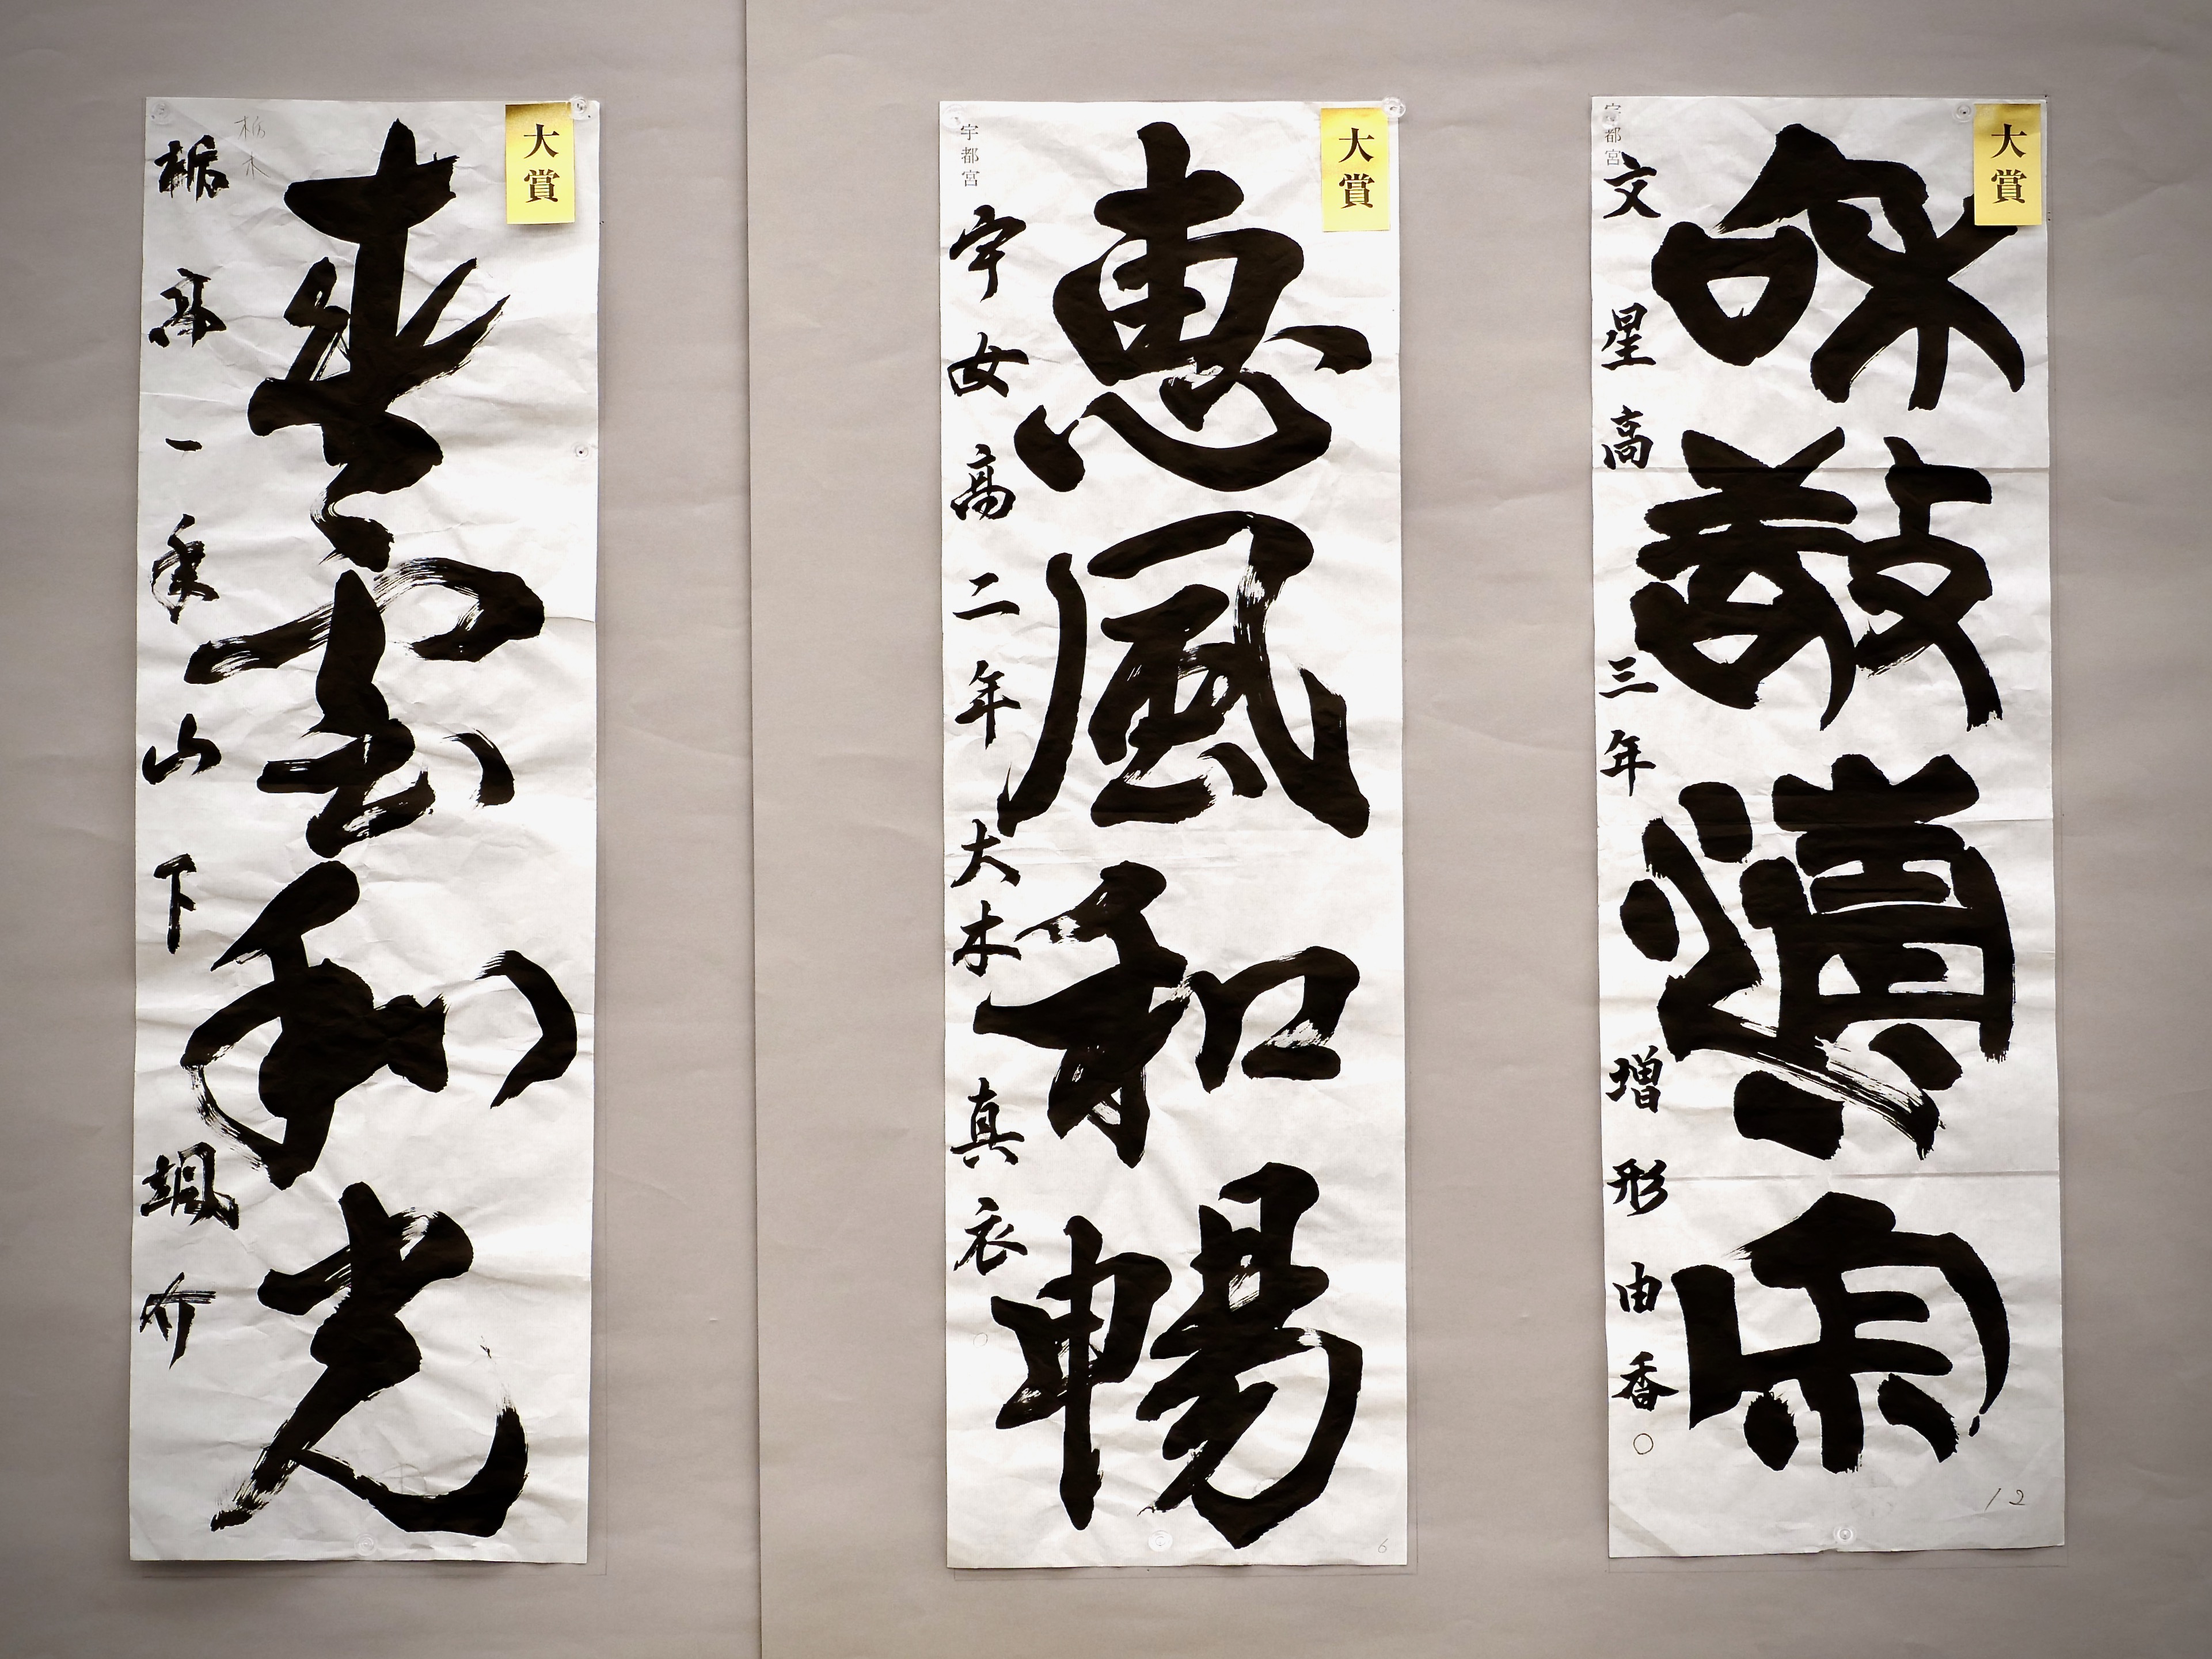 大賞
咊敬愼
宇都宮
文星高三年増形由香
12
大賞
恵風和暢
宇都宮
宇女高二年大木真衣
6
大賞
雲和光
栃木
栃高一年山下颯介